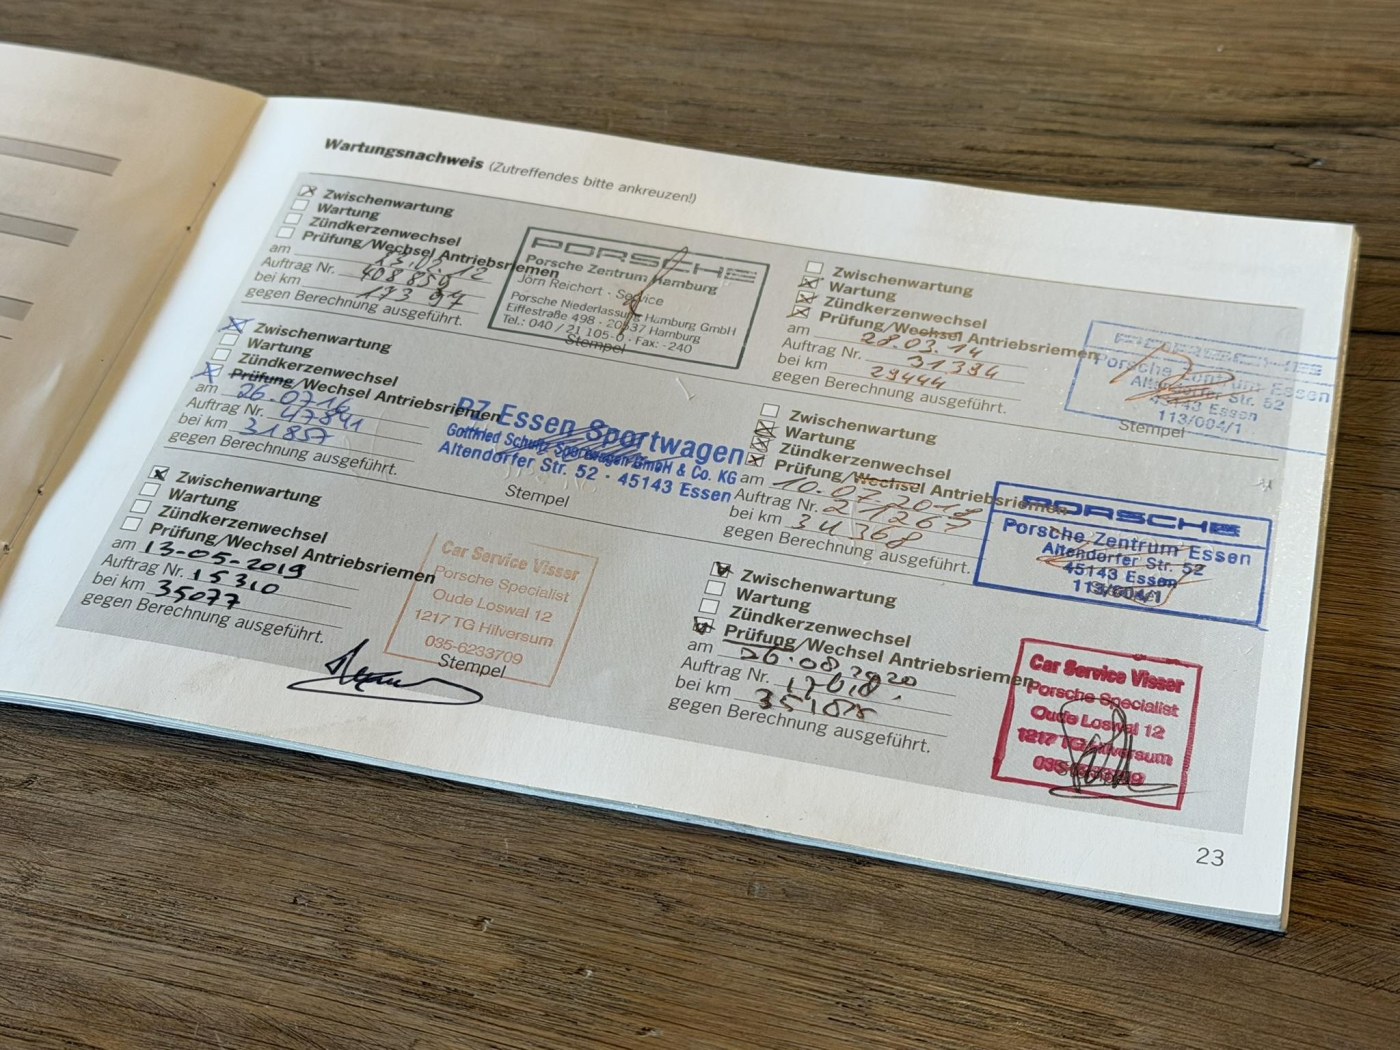 Wartungsnachweis (Zutreffendes bitte ankreuzen!)
Zwischenwartung
Wartung
Zündkerzenwechsel
Prüfung/Wechsel Antriebsriemen
am
Auftrag Nr. 408850
bei km
gegen Berechnung ausgeführt.
PORSCHE
Porsche Zentrum Hamburg
Jörn Reichert · Service
Porsche Niederlassung Hamburg GmbH
Eiffestraße 498 · 20537 Hamburg
Tel.: 040 / 21 105-0 · Fax: -240
Stempel
Zwischenwartung
Wartung
Zündkerzenwechsel
Prüfung/Wechsel Antriebsriemen
am 28.03.14
Auftrag Nr. 31394
bei km 29444
gegen Berechnung ausgeführt.
PORSCHE
Porsche Zentrum Essen
Altendorfer Str. 52
45143 Essen
113/004/1
Stempel
Zwischenwartung
Wartung
Zündkerzenwechsel
Prüfung/Wechsel Antriebsriemen
am 26.07.16
Auftrag Nr. 47841
bei km 31857
gegen Berechnung ausgeführt.
PZ Essen Sportwagen
Gottfried Schultz Sportwagen GmbH & Co. KG
Altendorfer Str. 52 · 45143 Essen
Stempel
Zwischenwartung
Wartung
Zündkerzenwechsel
Prüfung/Wechsel Antriebsriemen
am
Auftrag Nr.
bei km 34368
gegen Berechnung ausgeführt.
PORSCHE
Porsche Zentrum Essen
Altendorfer Str. 52
45143 Essen
113/004/1
Zwischenwartung
Wartung
Zündkerzenwechsel
Prüfung/Wechsel Antriebsriemen
am 13-05-2019
Auftrag Nr. 15310
bei km 35077
gegen Berechnung ausgeführt.
Car Service Visser
Porsche Specialist
Oude Loswal 12
1217 TG Hilversum
035-6233709
Stempel
Zwischenwartung
Wartung
Zündkerzenwechsel
Prüfung/Wechsel Antriebsriemen
am 26.08.2020
Auftrag Nr.
bei km
gegen Berechnung ausgeführt.
Car Service Visser
Porsche Specialist
Oude Loswal 12
1217 TG Hilversum
23